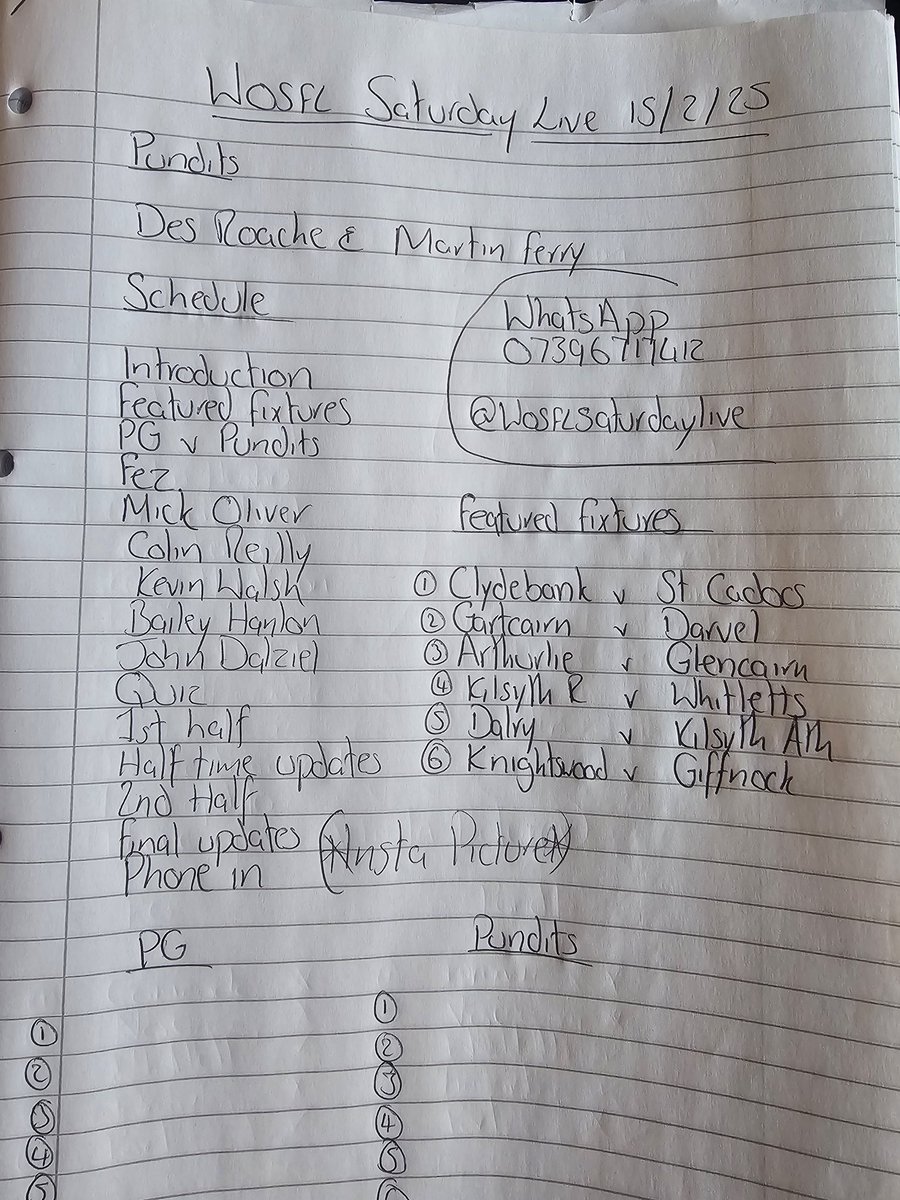 WOSFL Saturday Live 15/2/25
Pundits
Des Roache & Martin Ferry
Schedule
WhatsApp
07396717412
@WOSFLSaturdaylive
Introduction
Featured fixtures
PG v Pundits
Fez
Mick Oliver
Colin Reilly
Kevin Walsh
Bailey Hanlon
John Dalziel
Quiz
1st half
Half time updates
2nd Half
Final updates
Phone in
(*Insta Picture*)
Featured fixtures
① Clydebank v St Cadocs
② Gartcairn v Darvel
③ Arthurlie v Glencairn
④ Kilsyth R v Whitletts
⑤ Dalry v Kilsyth Ath
⑥ Knightswood v Giffnock
PG
①
②
③
④
⑤
Pundits
①
②
③
④
⑤